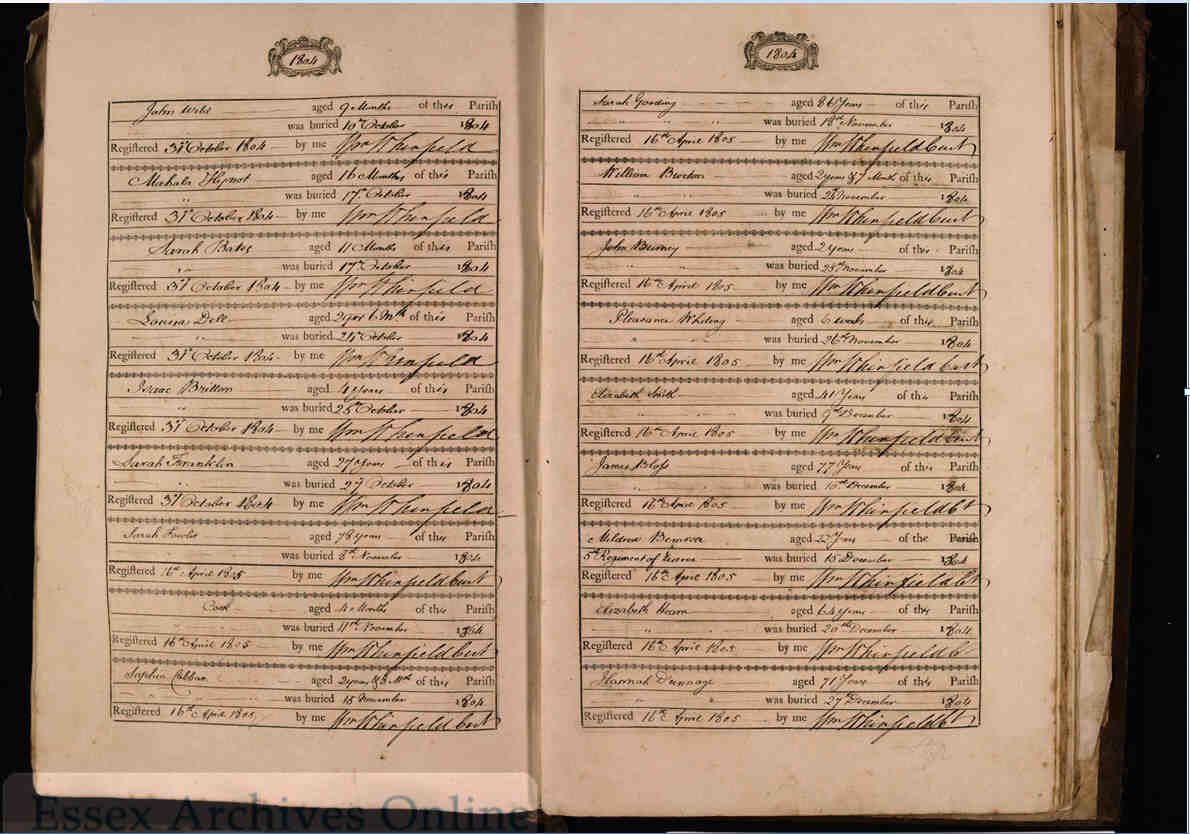 1804
John Wibl aged 9 Months of this Parish
was buried 10th October 1804
Registered 31st October 1804 by me Wm Whinfield
Mahala aged 16 Months of this Parish
" was buried 17th October 1804
Registered 31st October 1804 by me Wm Whinfield
Sarah Bates aged 11 Months of this Parish
" was buried 17th October 1804
Registered 31st October 1804 by me Wm Whinfield
Louisa Dell aged 2 yrs 6 Mths of this Parish
was buried October 1804
Registered 31st October 1804 by me Wm Whinfield
Isaac Britton aged 4 years of this Parish
" was buried 25th October 1804
Registered 31st October 1804 by me Wm Whinfield
Sarah Franklin aged 27 years of this Parish
was buried 29 October 1804
Registered 31st October 1804 by me Wm Whinfield
Sarah Fowler aged 78 years of this Parish
was buried 8th November 1804
Registered 16th April 1805 by me Wm Whinfield Curt
Cook aged 4 Month of this Parish
was buried 11th November 1804
Registered 16th April 1805 by me Wm Whinfield Curt
Sophia aged 2 years & 3 Mth of this Parish
was buried 15 November 1804
Registered 16th April 1805 by me Wm Whinfield Curt
1804
Sarah Gooding aged 86 Years of this Parish
was buried 18th November 1804
Registered 16th April 1805 by me Wm Whinfield Curt
William aged 2 years & 7 Month of this Parish
was buried November 1804
Registered 16th April 1805 by me Wm Whinfield Curt
John Burney aged 2 years of this Parish
was buried 25th November 1804
Registered 16th April 1805 by me Wm Whinfield Curt
Pleasance Whiting aged 6 weeks of this Parish
was buried 26th November 1804
Registered 16th April 1805 by me Wm Whinfield Curt
Elizabeth Smith aged 41 Years of this Parish
was buried 9th December 1804
Registered 16th April 1805 by me Wm Whinfield Curt
James Bloss aged 77 Years of this Parish
was buried 10th December 1804
Registered 16th April 1805 by me Wm Whinfield Ct
Mildred aged 22 Years of the Parish
5th Regiment of was buried 15 December 1804
Registered 16th April 1805 by me Wm Whinfield Ct
Elizabeth Hearn aged 64 years of this Parish
was buried 20th December 1804
Registered 16th April 1805 by me Wm Whinfield C
Hannah Dunnage aged 71 Years of this Parish
was buried 27th December 1804
Registered 16th April 1805 by me Wm Whinfield Ct
Essex Archives Online